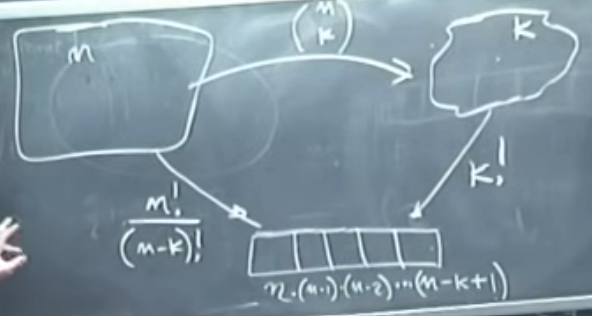 n
(n k)
k
n!/(n-k)!
k!
n·(n-1)·(n-2)···(n-k+1)